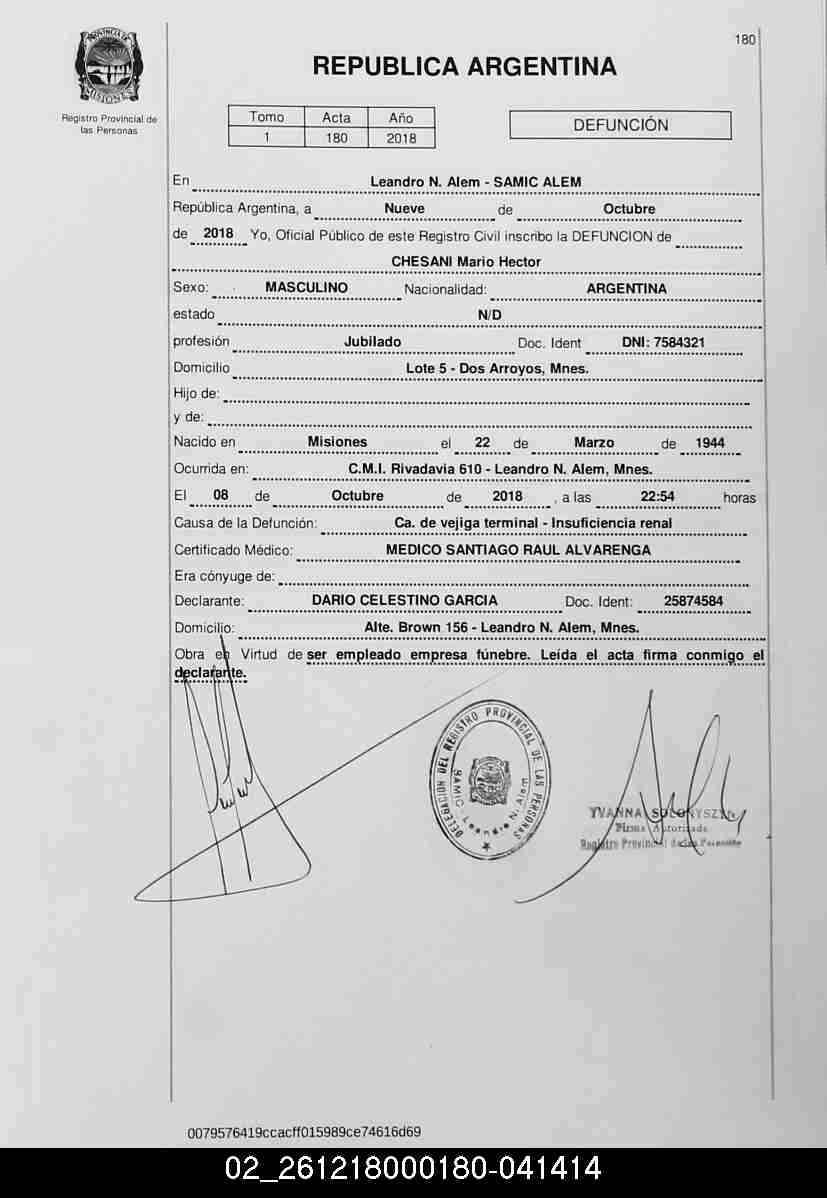 180
PROVINCIA DE
MISIONES
REPUBLICA ARGENTINA
Registro Provincial de
las Personas
Tomo Acta Año
1 180 2018
DEFUNCIÓN
En Leandro N. Alem - SAMIC ALEM
República Argentina, a Nueve de Octubre
de 2018 Yo, Oficial Público de este Registro Civil inscribo la DEFUNCION de
CHESANI Mario Hector
Sexo: MASCULINO Nacionalidad: ARGENTINA
estado N/D
profesión Jubilado Doc. Ident DNI: 7584321
Domicilio Lote 5 - Dos Arroyos, Mnes.
Hijo de:
y de:
Nacido en Misiones el 22 de Marzo de 1944
Ocurrida en: C.M.I. Rivadavia 610 - Leandro N. Alem, Mnes.
El 08 de Octubre de 2018 , a las 22:54 horas
Causa de la Defunción: Ca. de vejiga terminal - Insuficiencia renal
Certificado Médico: MEDICO SANTIAGO RAUL ALVARENGA
Era cónyuge de:
Declarante: DARIO CELESTINO GARCIA Doc. Ident: 25874584
Domicilio: Alte. Brown 156 - Leandro N. Alem, Mnes.
Obra en Virtud de ser empleado empresa fúnebre. Leída el acta firma conmigo el
declarante.
DELEGACION DEL REGISTRO PROVINCIAL DE LAS PERSONAS
SAMIC - Leandro N. Alem
YVANNA
Firma Autorizada
Registro Provincial de las Personas
0079576419ccacff015989ce74616d69
02_261218000180-041414